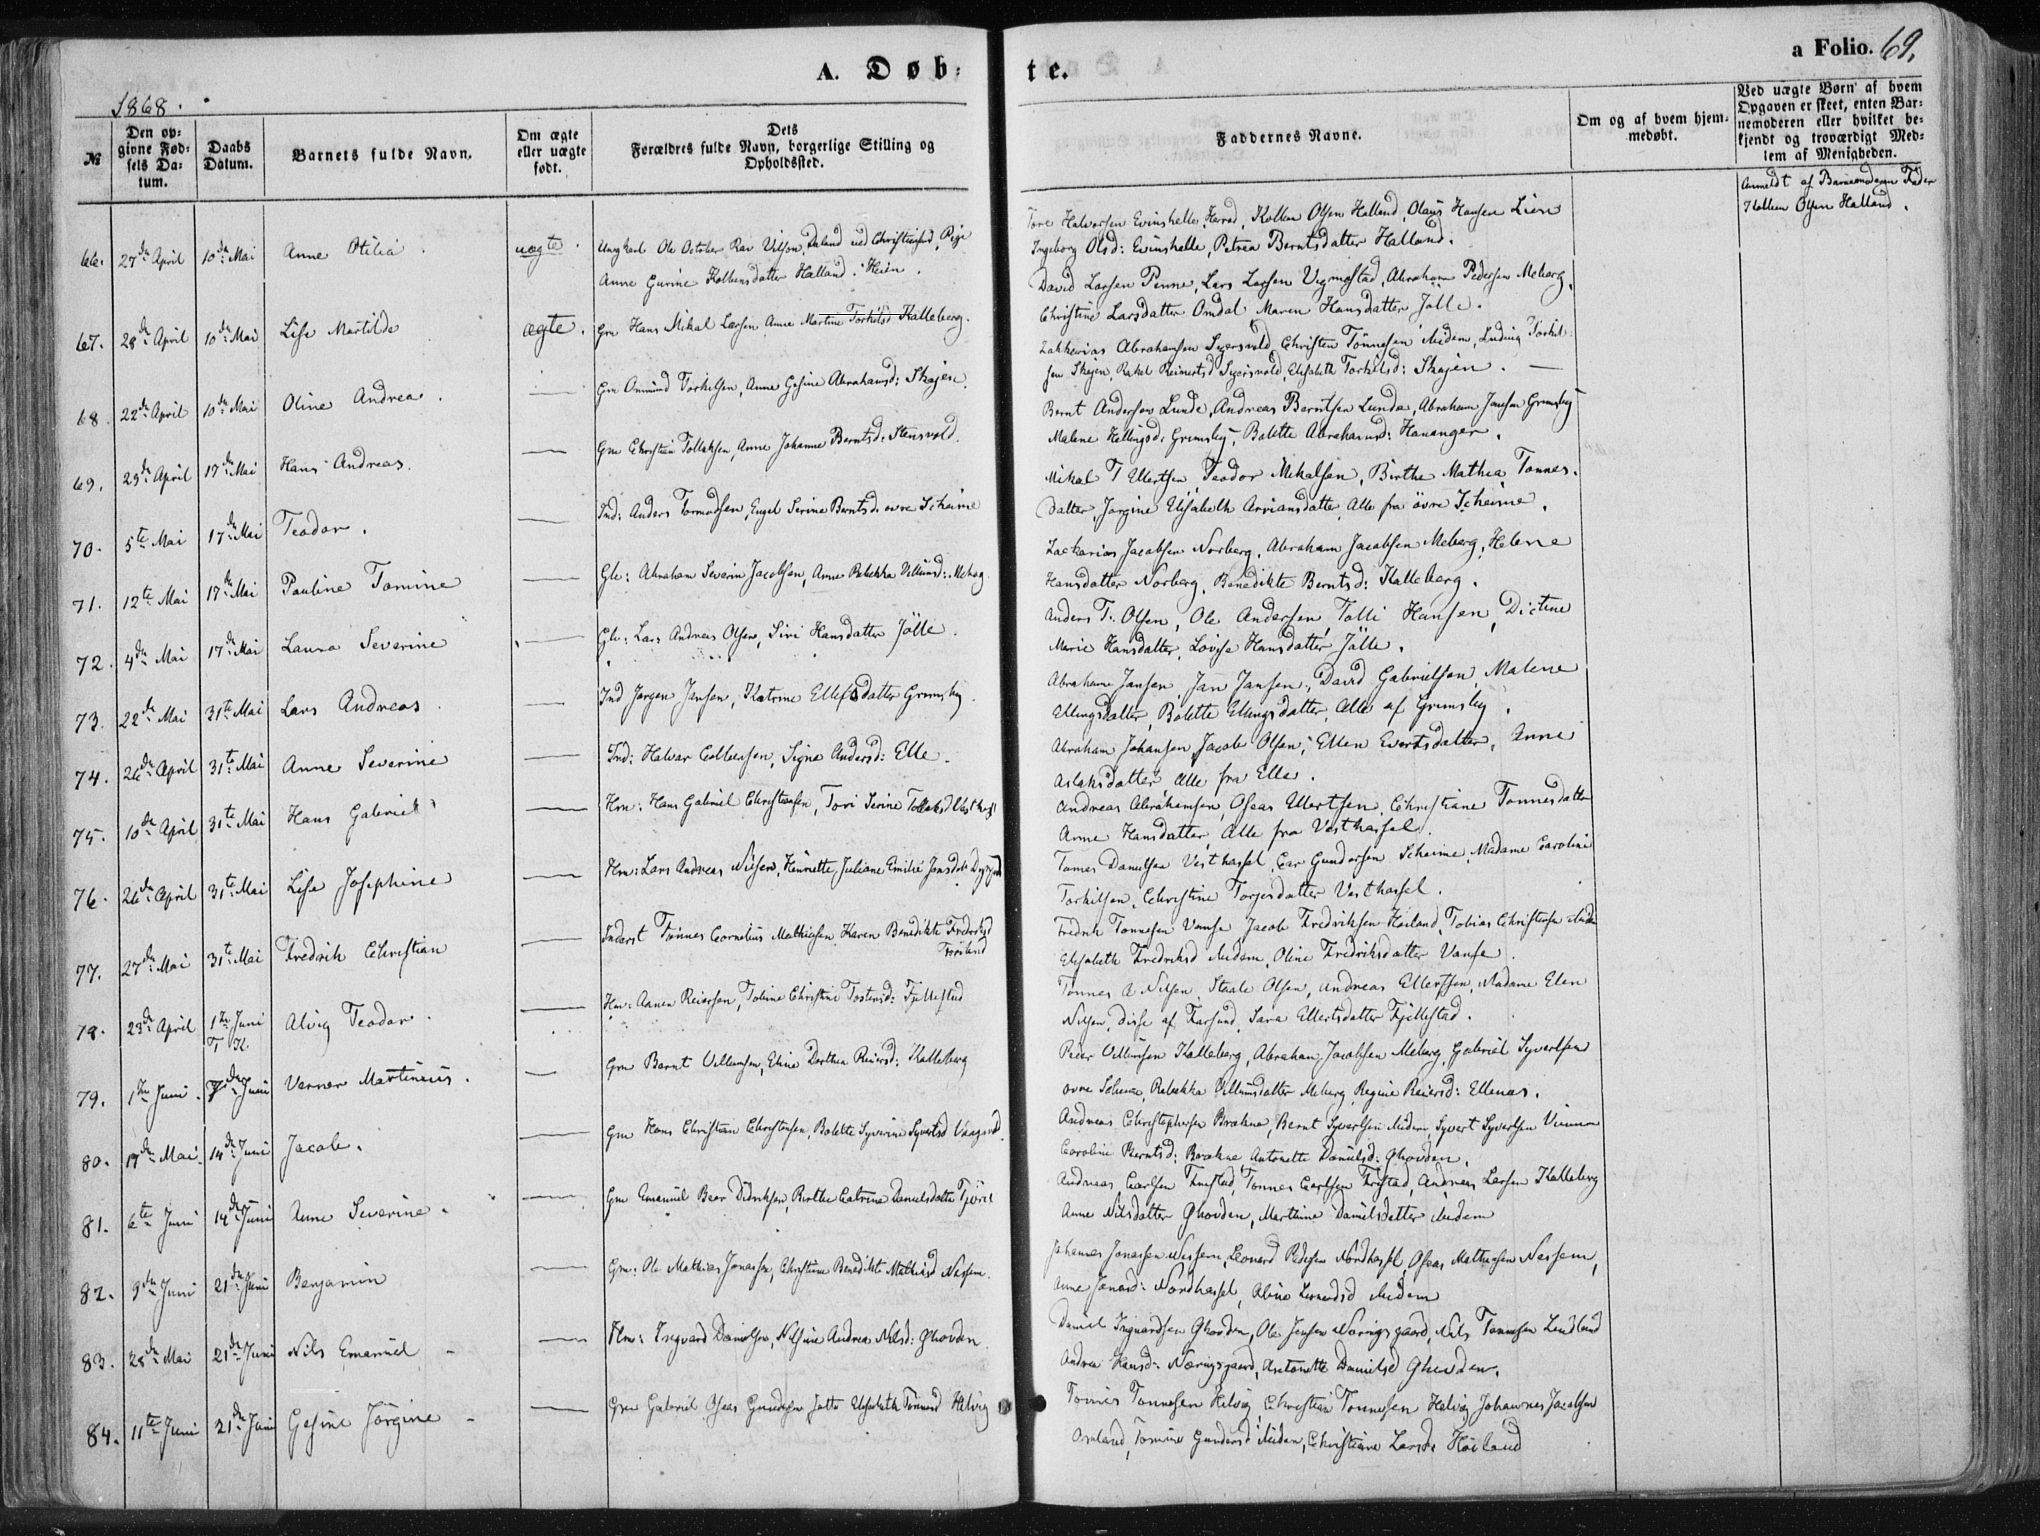 A. Døb:
te.
a Folio. 69.
1868.
№
Den op-
givne Fød-
sels Da-
tum.
Daabs
Datum.
Barnets fulde Navn.
Om ægte
eller uægte
født.
Dets
Forældres fulde Navn, borgerlige Stilling og
Opholdssted.
Faddernes Navne.
Om og af hvem hjem-
medøbt.
Ved uægte Børn af hvem
Opgaven er skeet, enten Bar-
nemoderen eller hvilket be-
kjendt og troværdigt Med-
lem af Menigheden.
66. 27de April 10de Mai Anne Otilia. uægte. Ungkarl Ole October Rav Vilson, Daland ved Christiansand, Pige
Anne Gurine Kolbensdatter Halland. Heien.
Tore Halversen Evinshelle, Herad, Kolben Olsen Halland, Olaus Hansen Lien
Ingeborg Olsd: Evinshelle, Petrea Berntsdatter Halland.
Anmeldt af Barnemoderens Fader
Kolben Olsen Halland.
67. 28de April 10de Mai Lise Martilde ægte. Gm Hans Mikal Larsen Anne Martine Torkilsd Kalleberg.
David Larsen Penne, Lars Larsen Vegmostad, Abraham Pedersen Meberg,
Christine Larsdatter Omdal Maren Hansdatter Jølle.
68. 22de April 10de Mai Oline Andrea. — Gm Ommund Torkelsen, Anne Gesine Abrahamsd: Skajen.
Zakkarias Abrahamsen Sigersvold, Christen Tönnesen Midem, Ludvig Torkil-
sen Skajen, Rakel Reinertsd Sigersvold, Elisabeth Torkilsd: Skajen. —
69. 29de April 17de Mai Hans Andreas. — Gm Christian Tollaksen, Anne Johanne Berntsd: Stensvold.
Bernt Andersen Lunde, Andreas Berntsen Lunde, Abraham Jansen Grimsby
Malene Hellingsd: Grimsby, Bolette Abrahamsd: Hananger.
70. 5te Mai 17de Mai Teodor. — Ind: Anders Tormodsen, Engel Serine Berntsd. øvre Scheime
Mikal T Ellertsen, Teodor Mikalsen, Birthe Mathea Tønnes-
datter, Jörgine Elisabeth Arriansdatter, Alle fra övre Scheime.
71. 12te Mai 17de Mai Pauline Tomine — Gb: Abraham Severin Jacobsen, Anne Rebekka Villumsd: Meberg.
Zackarias Jacobsen Norberg, Abraham Jacobsen Meberg, Helene
Hansdatter Norberg, Benedikte Berntsd: Kalleberg.
72. 4de Mai 17de Mai Laura Severine — Gb: Lars Andreas Olsen, Siri Hansdatter Jölle.
Anders T. Olsen, Ole Andersen, Tolli Hansen, Dictine
Marie Hansdatter, Lovise Hansdatter Jölle.
73. 22de Mai 31te Mai Lars Andreas. — Ind Jørgen Jansen, Katrine Ellefsdatter Grimsby.
Abraham Jansen, Jan Jansen, David Gabrielsen, Malene
Ellingsdatter, Bolette Ellingsdatter, Alle af Grimsby.
74. 26de April 31te Mai Anne Severine — Ind: Halvar Colbensen, Signe Andersd: Elle.
Abraham Johansen Jacob Olsen, Ellen Evertsdatter, Anne
Aslaksdatter Alle fra Elle.
75. 10de April 31te Mai Hans Gabriel — Hm: Hans Gabriel Christensen, Tori Serine Tollaksd Vesthassel
Andreas Abrahamsen, Oseas Ellertsen, Christiane Tønnesdatter
Anne Hansdatter, Alle fra Vesthassel.
76. 26de April 31te Mai Lise Josephine — Hm: Lars Andreas Nilsen, Henriette Juliane Emilie
Tønnes Danielsen Vesthassel, Carl Gundersen Scheime, Madame Caroline
Torkilsen, Christine Torgersdatter Vesthassel.
77. 27de Mai 31te Mai Fredrik Christian — Inderst Tönnes Cornelius Mathiesen, Karen Benedikte Fredriksd
Fredrik Tønnesen Vanse Jacob Fredriksen Heiland, Tobias Christensen Midem
Elisabeth Fredriksd Midem, Oline Fredriksdatter Vanse.
78. 23de April 1te Juni Alvig Teodor. — Hm: Aanen Reiersen, Tobine Christine Tostensd: Fjellestad
T. K.
Tønnes A Nilsen, Staale Olsen, Andreas Ellertsen, Madame Elen
Nilsen, disse af Farsund, Sara Ellertsdatter Fjellestad.
79. 1te Juni. 7de Juni Verner Martinius. — Gm Bernt Villumsen, Eline Dorthea Reiersd: Kalleberg
Peder Villumsen Kalleberg, Abraham Jacobsen Meberg, Gabriel Syvertsen
øvre Scheime, Rebekka Villumsdatter Meberg, Regine Reiersd: Ellenas.
80. 17de Mai. 14de Juni Jacob. — Gm Hans Christian Christensen, Bolette Syverine Syvertsd
Andreas Christophersen Brækne, Bernt Syvertsen Midem, Syvert Syvertsen
Caroline Berntsd: Brækne Antonette Danielsd: Ghovden.
81. 6te Juni 14de Juni Anne Severine. — Gm Emanuel Beer Didriksen, Birthe Catrine Danielsdatter
Andreas Carlsen Frestad, Tønnes Carlsen Frestad, Andreas Larsen Kalleberg
Anne Nilsdatter Ghovden, Marthine Danielsdatter Midem
82. 9de Juni 21de Juni Benjamin — Gm: Ole Mathias Jonassen, Christine Benedikte Mathiasd Nessem.
Johannes Jonassen Nessem, Leonard Pedersen Nordhassel, Oseas Mathiasen Nessem,
Anne Jonasd: Nordhassel, Oline Leonardsd Midem
83. 28de Mai 21de Juni Nils Emanuel — Hm: Ingvard Danielsen, Nilsine Andrea Nilsd: Ghovden.
Daniel Ingvardsen Ghovden, Ole Jensen Næringsgaard, Nils Tønnesen Lindland
Andrea Hansd: Næringsgaard, Antonette Danielsd Ghovden.
84. 11te Juni 21de Juni Gesine Jörgine — Gm Gabriel Oseas Gundersen Jotta Elisabeth Tønnesd Helvig
Tønnes Tønnesen Helvig, Christian Tønnesen Helvig Johannes Jacobsen
Omland, Tomine Gundersd Midem, Christiane Larsd: Høiland